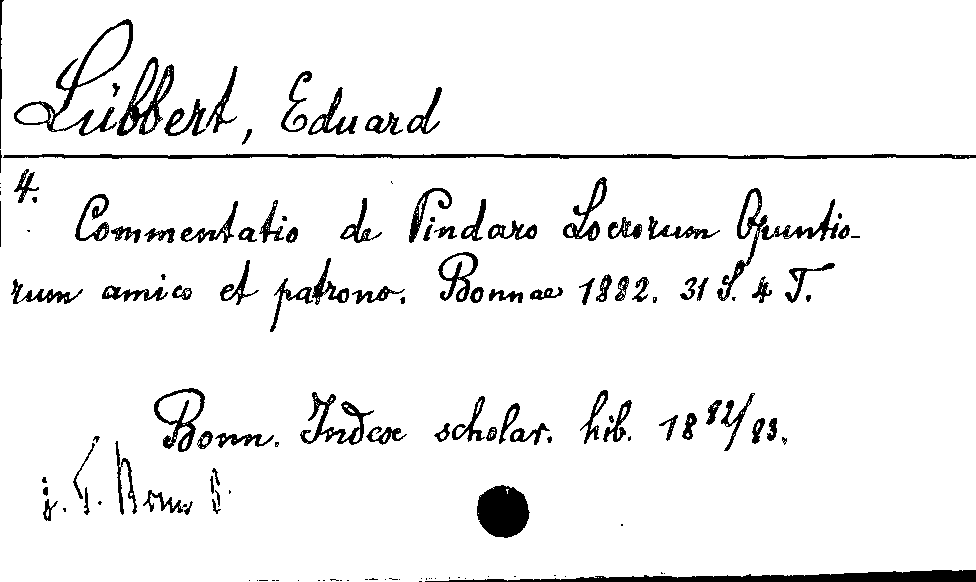 Lübbert, Eduard
4.
Commentatio de Pindaro Locrorum Opuntio-
rum amico et patrono. Bonnae 1882. 31 S. 4 T.
Bonn. Index scholar. hib. 1882/83.